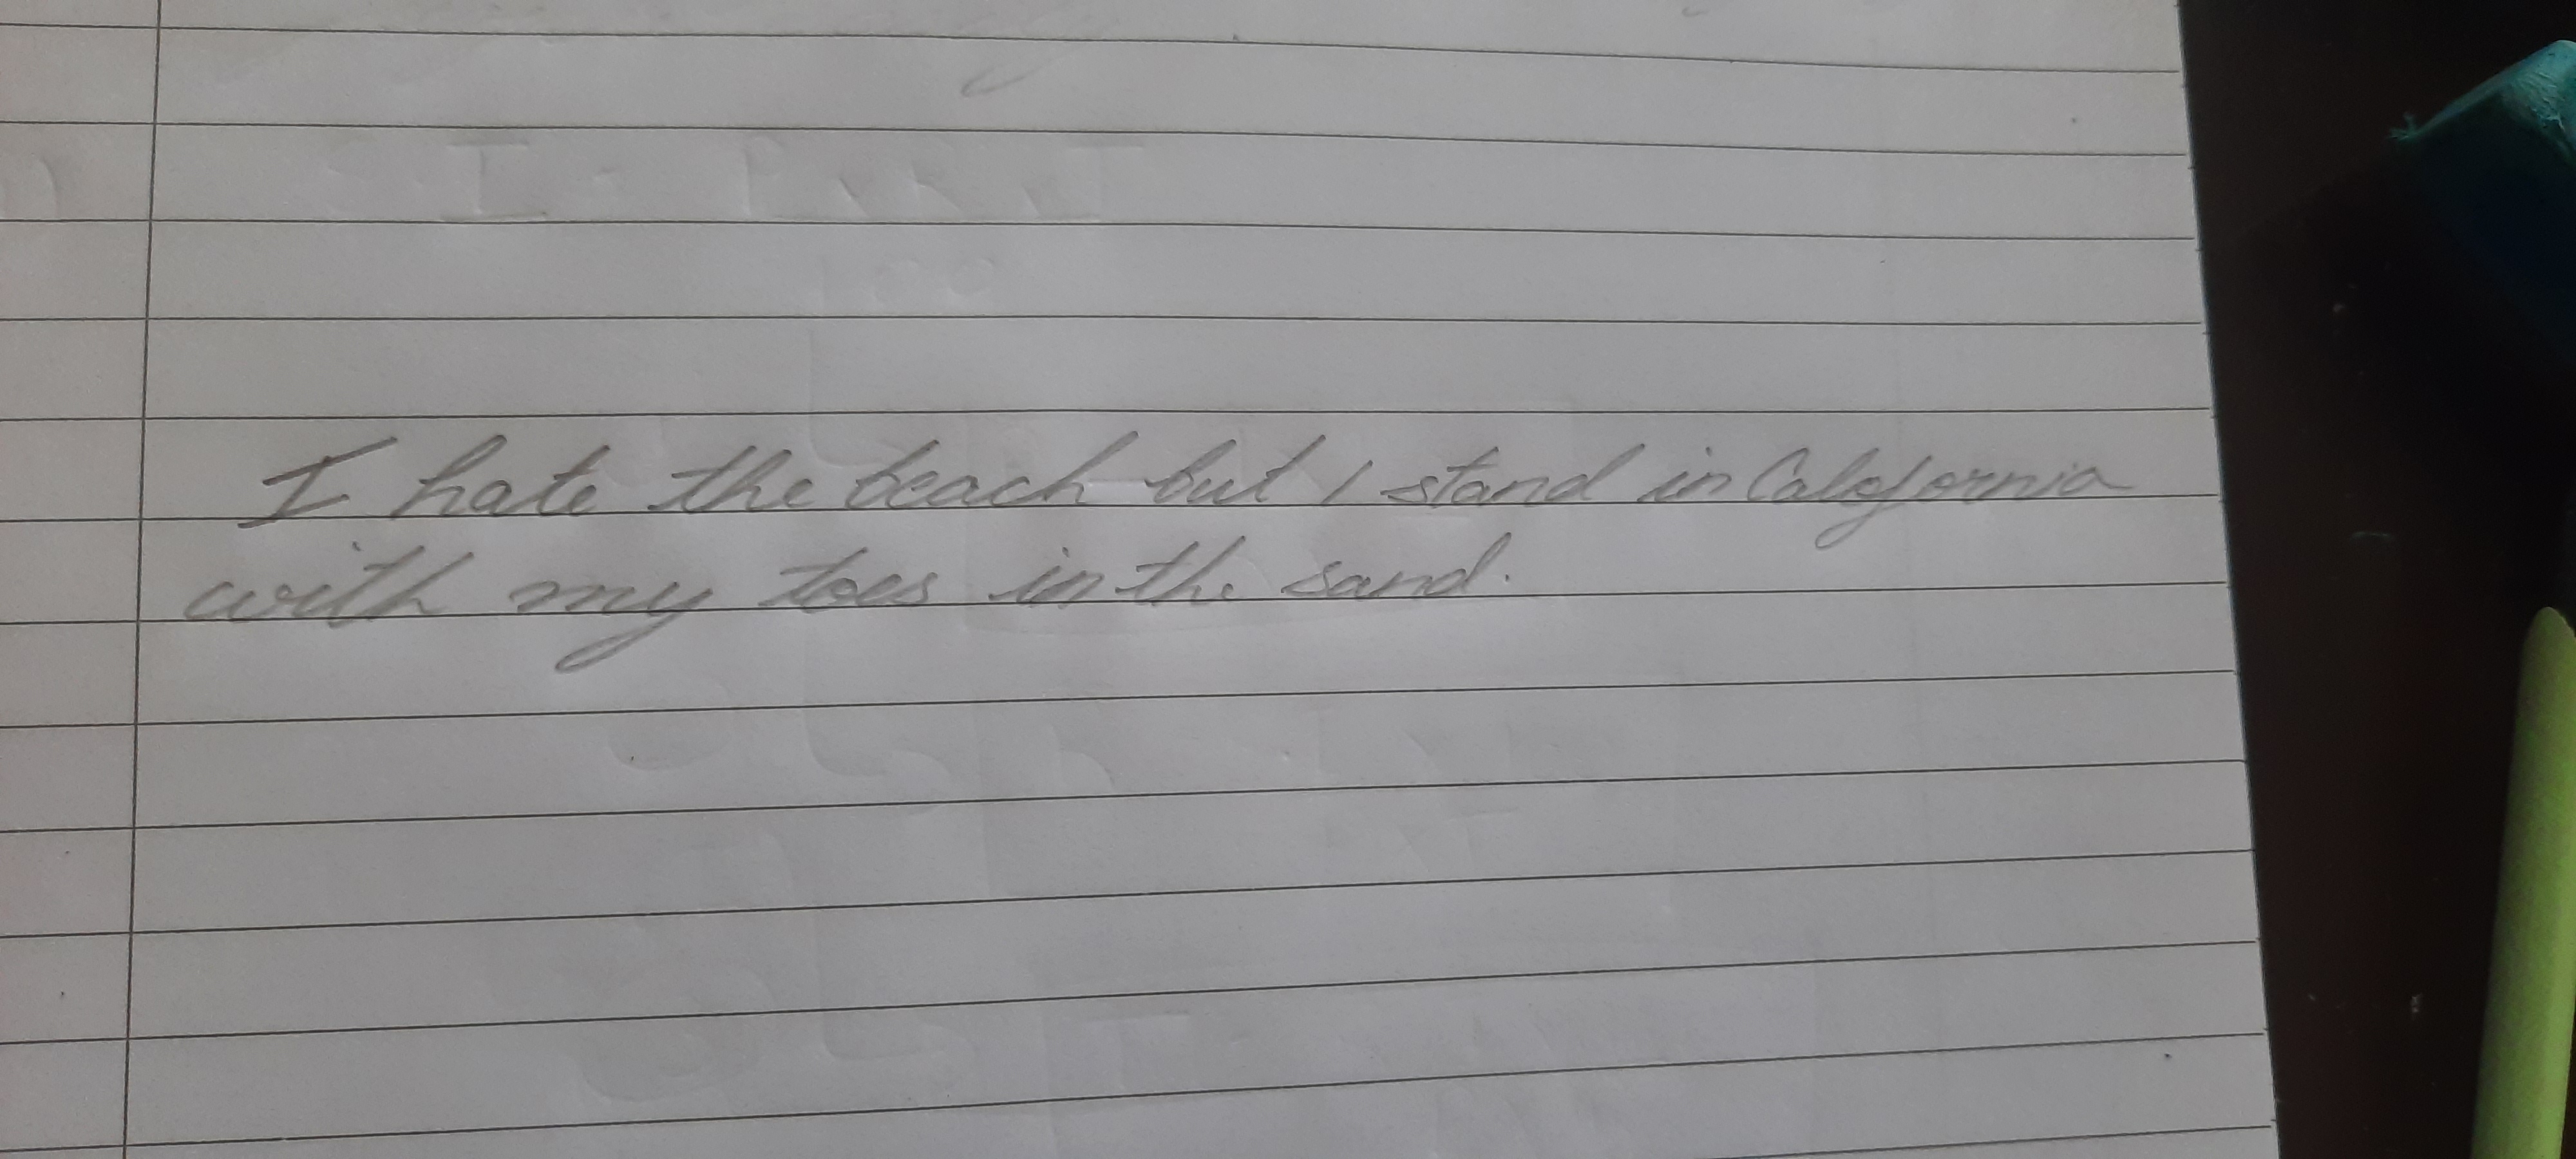 I hate the beach but I stand in California
with my toes in the sand.